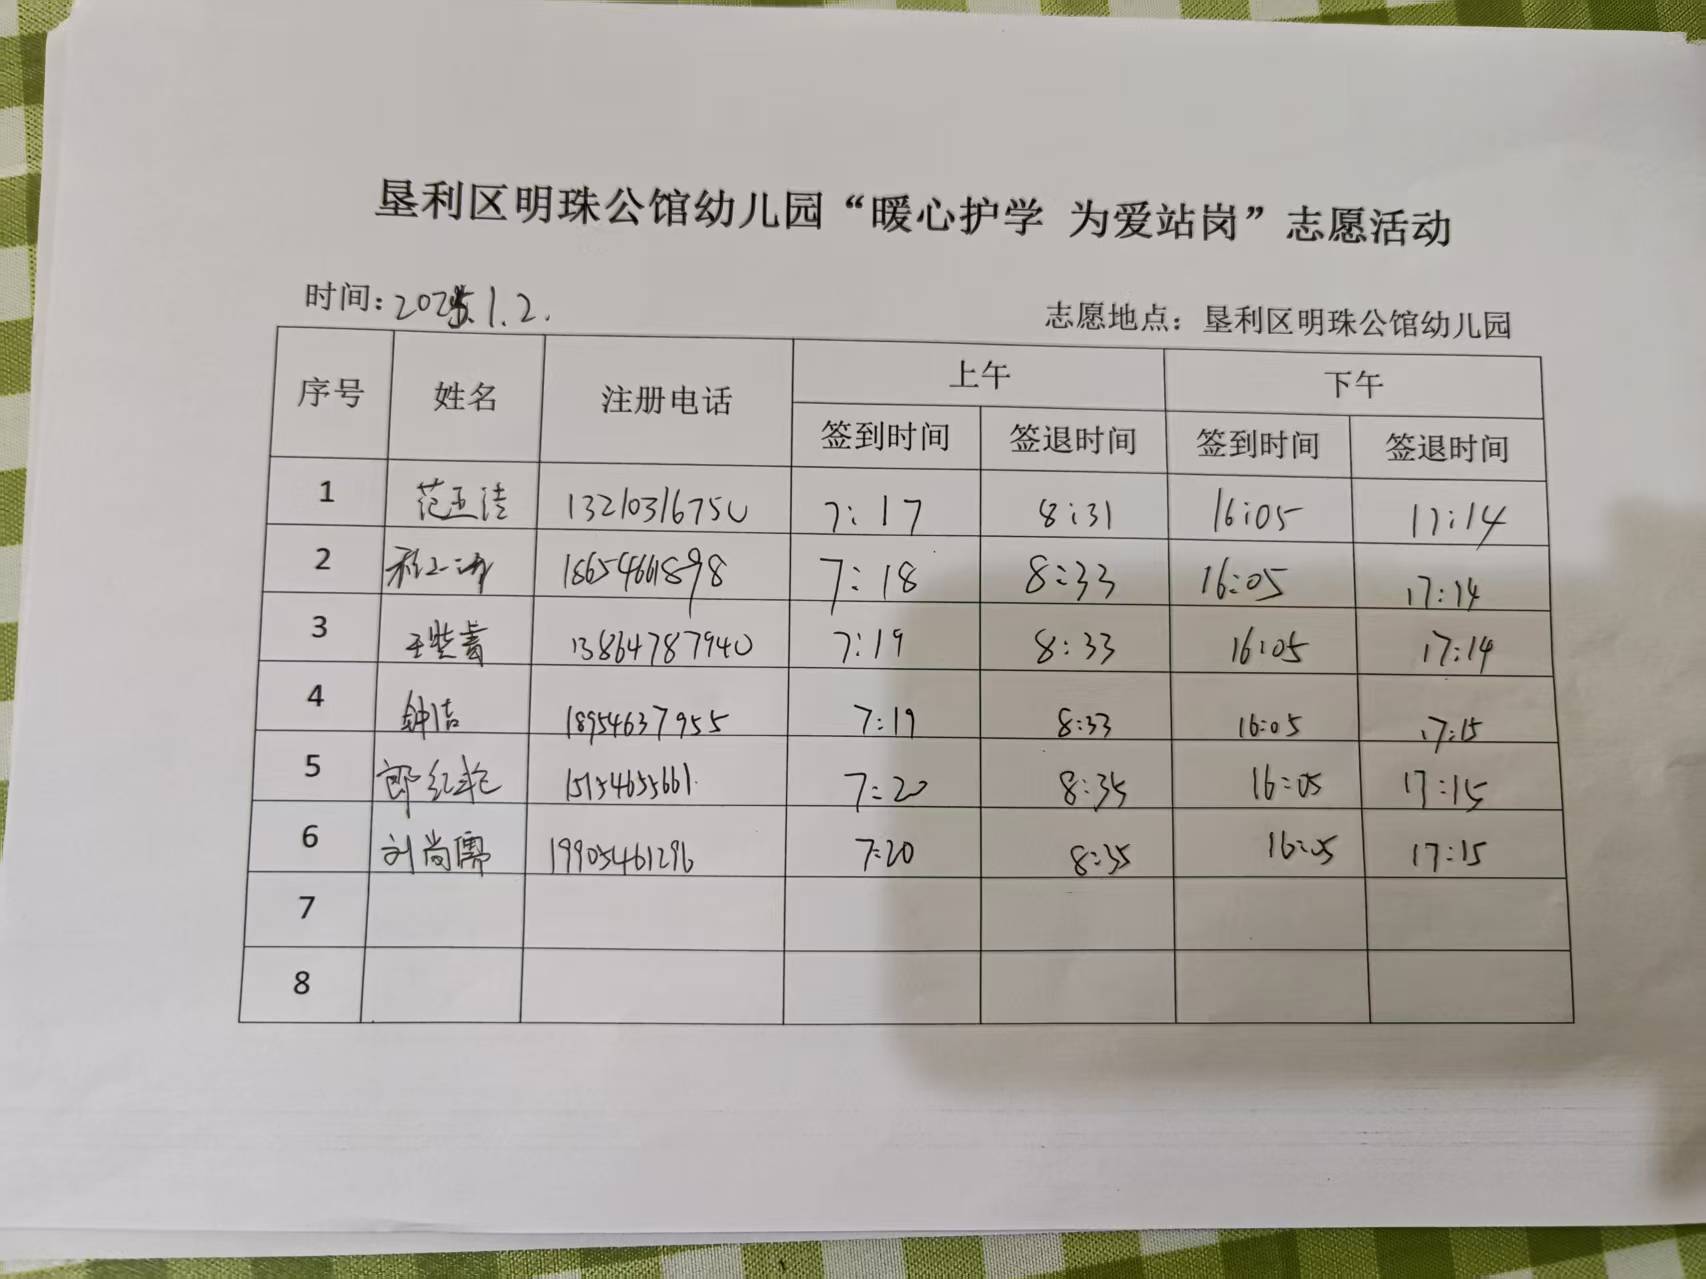 垦利区明珠公馆幼儿园“暖心护学 为爱站岗”志愿活动
时间：2025.1.2.
志愿地点：垦利区明珠公馆幼儿园
序号 姓名 注册电话 上午 下午
签到时间 签退时间 签到时间 签退时间
1 范玉洁 13210316750 7:17 8:31 16:05 17:14
2 18654661898 7:18 8:33 16:05 17:14
3 13864787940 7:19 8:33 16:05 17:14
4 钟洁 18954637955 7:19 8:33 16:05 17:15
5 郎红艳 15154655661. 7:20 8:35 16:05 17:15
6 刘尚儒 19905461296 7:20 8:35 16:05 17:15
7
8